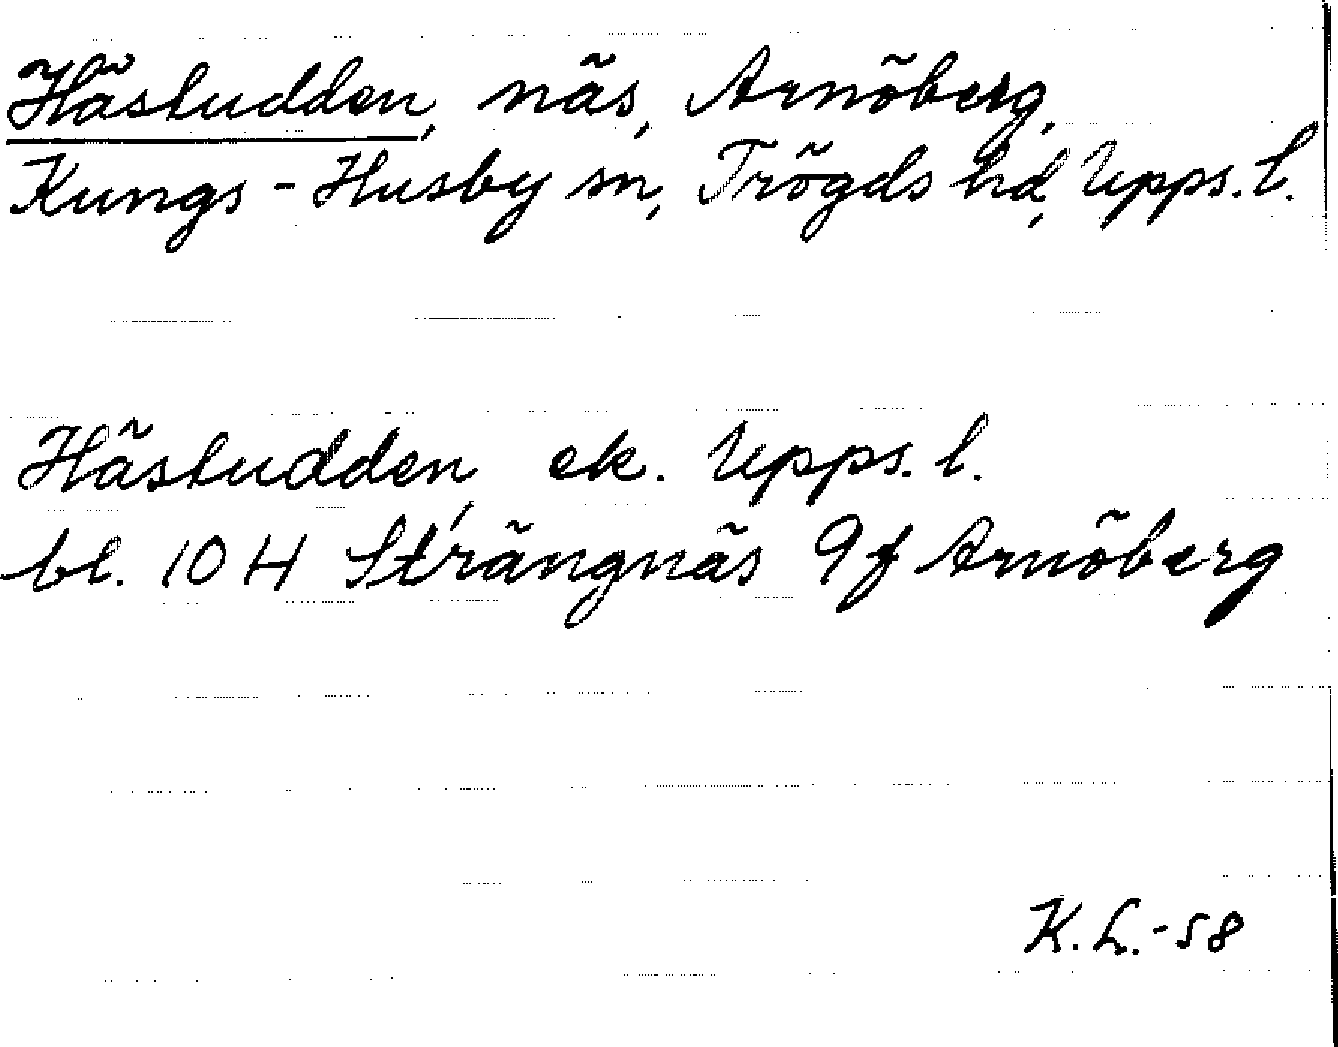 Hästudden, näs, Arnöberg,
Kungs-Husby sn, Trögds hd, Upps. l.
Hästudden, ek. Upps. l.
bl. 10 H Strängnäs 9f Arnöberg
K. L.-58